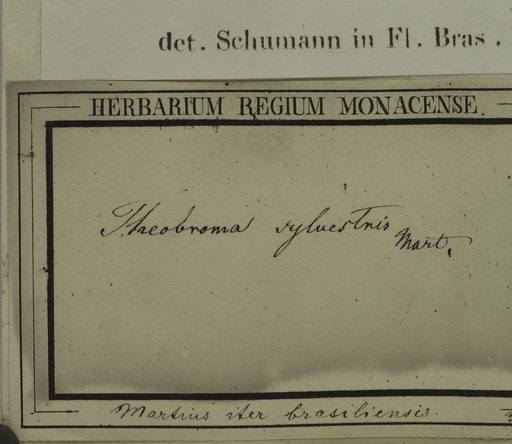 det. Schumann in Fl. Bras.
HERBARIUM REGIUM MONACENSE.
Theobroma sylvestris Mart.
Martius iter brasiliensis.